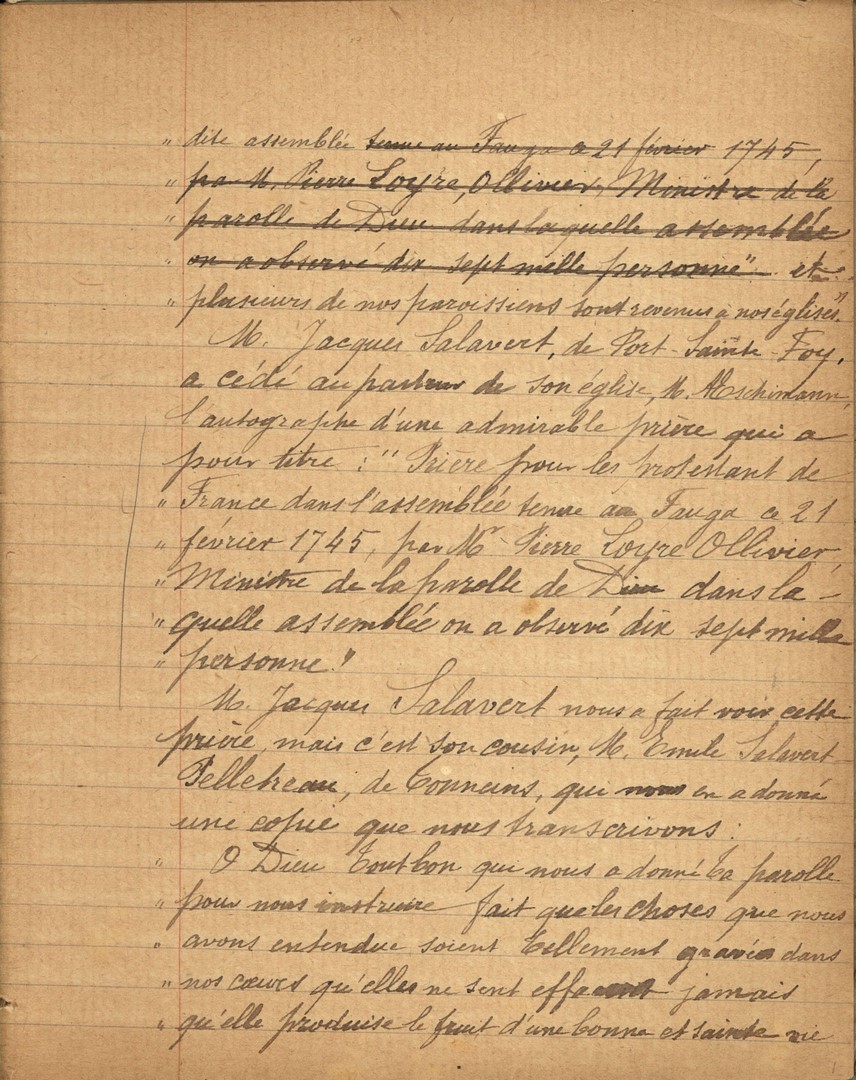 " dite assemblée tenue au Fauga ce 21 février 1745,
" par M. Pierre Loyre, Ollivier, Ministre de la
" parolle de Dieu dans la quelle assemblée
" on a observé dix sept mille personne" et
" plusieurs de nos paroissiens sont revenus à nos églises"
M. Jacques Salavert, de Port-Sainte-Foy,
a cédé au pasteur de son église, M. Æschimann,
l'autographe d'une admirable prière qui a
pour titre : " Prière pour les protestant de
" France dans l'assemblée tenue au Fauga ce 21
" février 1745, par Mr Pierre Loyre Ollivier
" Ministre de la parolle de Dieu dans la-
" quelle assemblée on a observé dix sept mille
" personne."
M. Jacques Salavert nous a fait voir cette
prière, mais c'est son cousin, M. Emile Salavert-
Pelletreau, de Tonneins, qui nous en a donné
une copie que nous transcrivons :
" O Dieu Tout bon qui nous a donné ta parolle
" pour nous instruire fait que les choses que nous
" avons entendue soient tellement gravées dans
" nos cœurs qu'elles ne sent jamais
" qu'elle produise le fruit d'une bonne et sainte vie